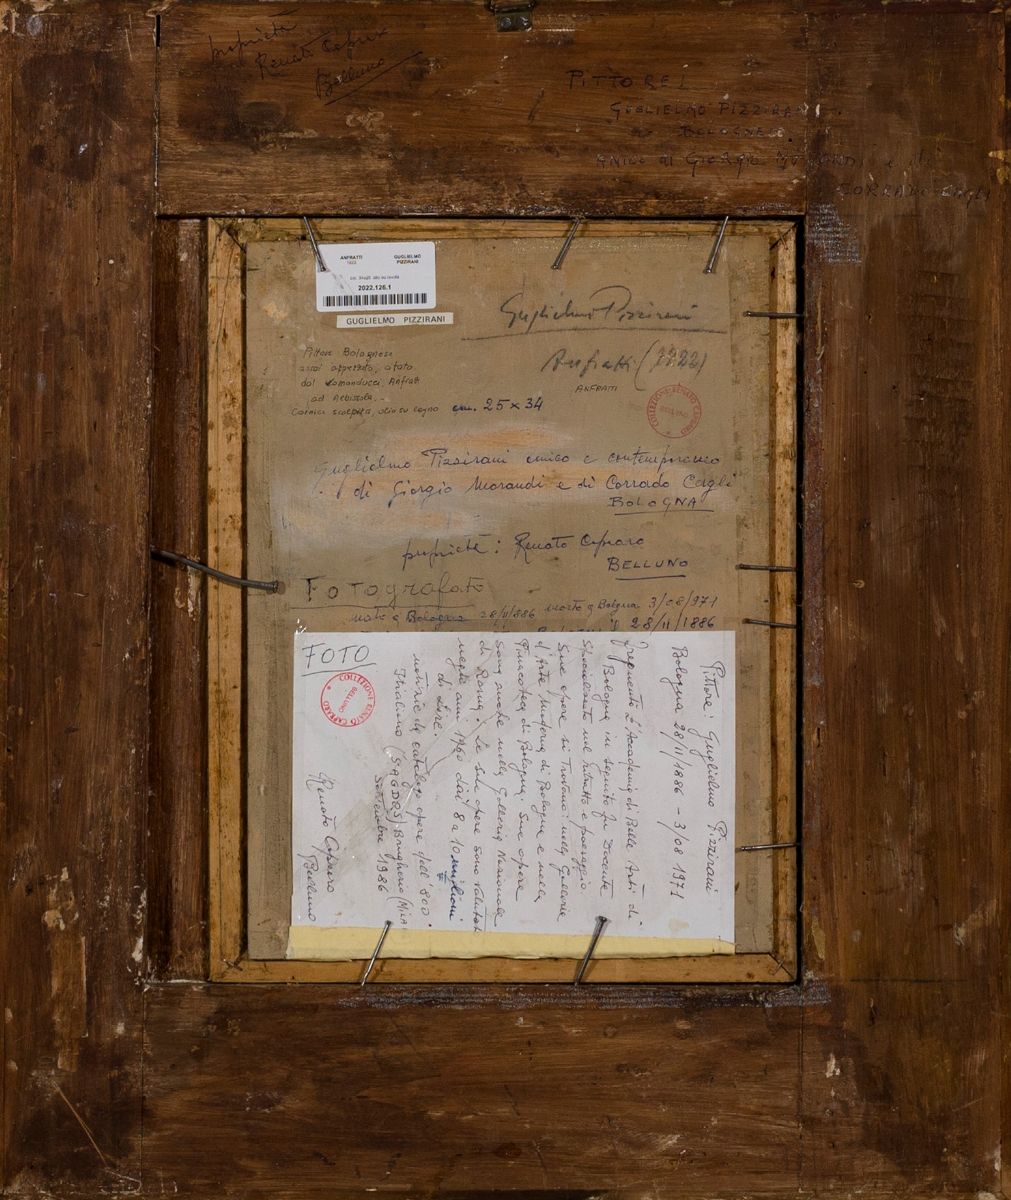 proprietà
Renato Capraro
Belluno
PITTORE
GUGLIELMO PIZZIRANI
BOLOGNESE.
AMICO di GIORGIO MORANDI e di
CORRADO CAGLI
ANFRATTI
1922
GUGLIELMO
PIZZIRANI
olio su tavola
2022.126.1
GUGLIELMO PIZZIRANI
Guglielmo Pizzirani
Anfratti (1922)
ANFRATTI
Pittore Bolognese
assai apprezzato,
dal Anfratti
ad Albissola.
Cornice scolpita, olio su legno cm. 25 x 34
COLLEZIONE RENATO CAPRARO
BELLUNO
Guglielmo Pizzirani amico e contemporaneo
di Giorgio Morandi e di Corrado Cagli
BOLOGNA
proprietà: Renato Capraro
BELLUNO
Fotografato
nato a Bologna 28/11/886 morto a Bologna 3/08/971
28/11/1886
FOTO
COLLEZIONE RENATO CAPRARO
BELLUNO
Pittore: Guglielmo Pizzirani
Bologna 28/11/1886 - 3/08 1971
frequentò l'Accademia di Belle Arti di
Bologna in seguito fu Docente
specializzato nel ritratto e paesaggio.
Sue opere si trovano: nella Galleria
d'Arte Moderna di Bologna e nella
Pinacoteca di Bologna. Sue opere
sono anche nella Galleria Nazionale
di Roma. Le sue opere sono valutate
negli anni 1960 dai 8 a 10 milioni
di Lire.
notizie da catalogo opere dell'800
Italiano (SAGDOS) Brugherio (MILA
Settembre 1986
Renato Capraro
Belluno